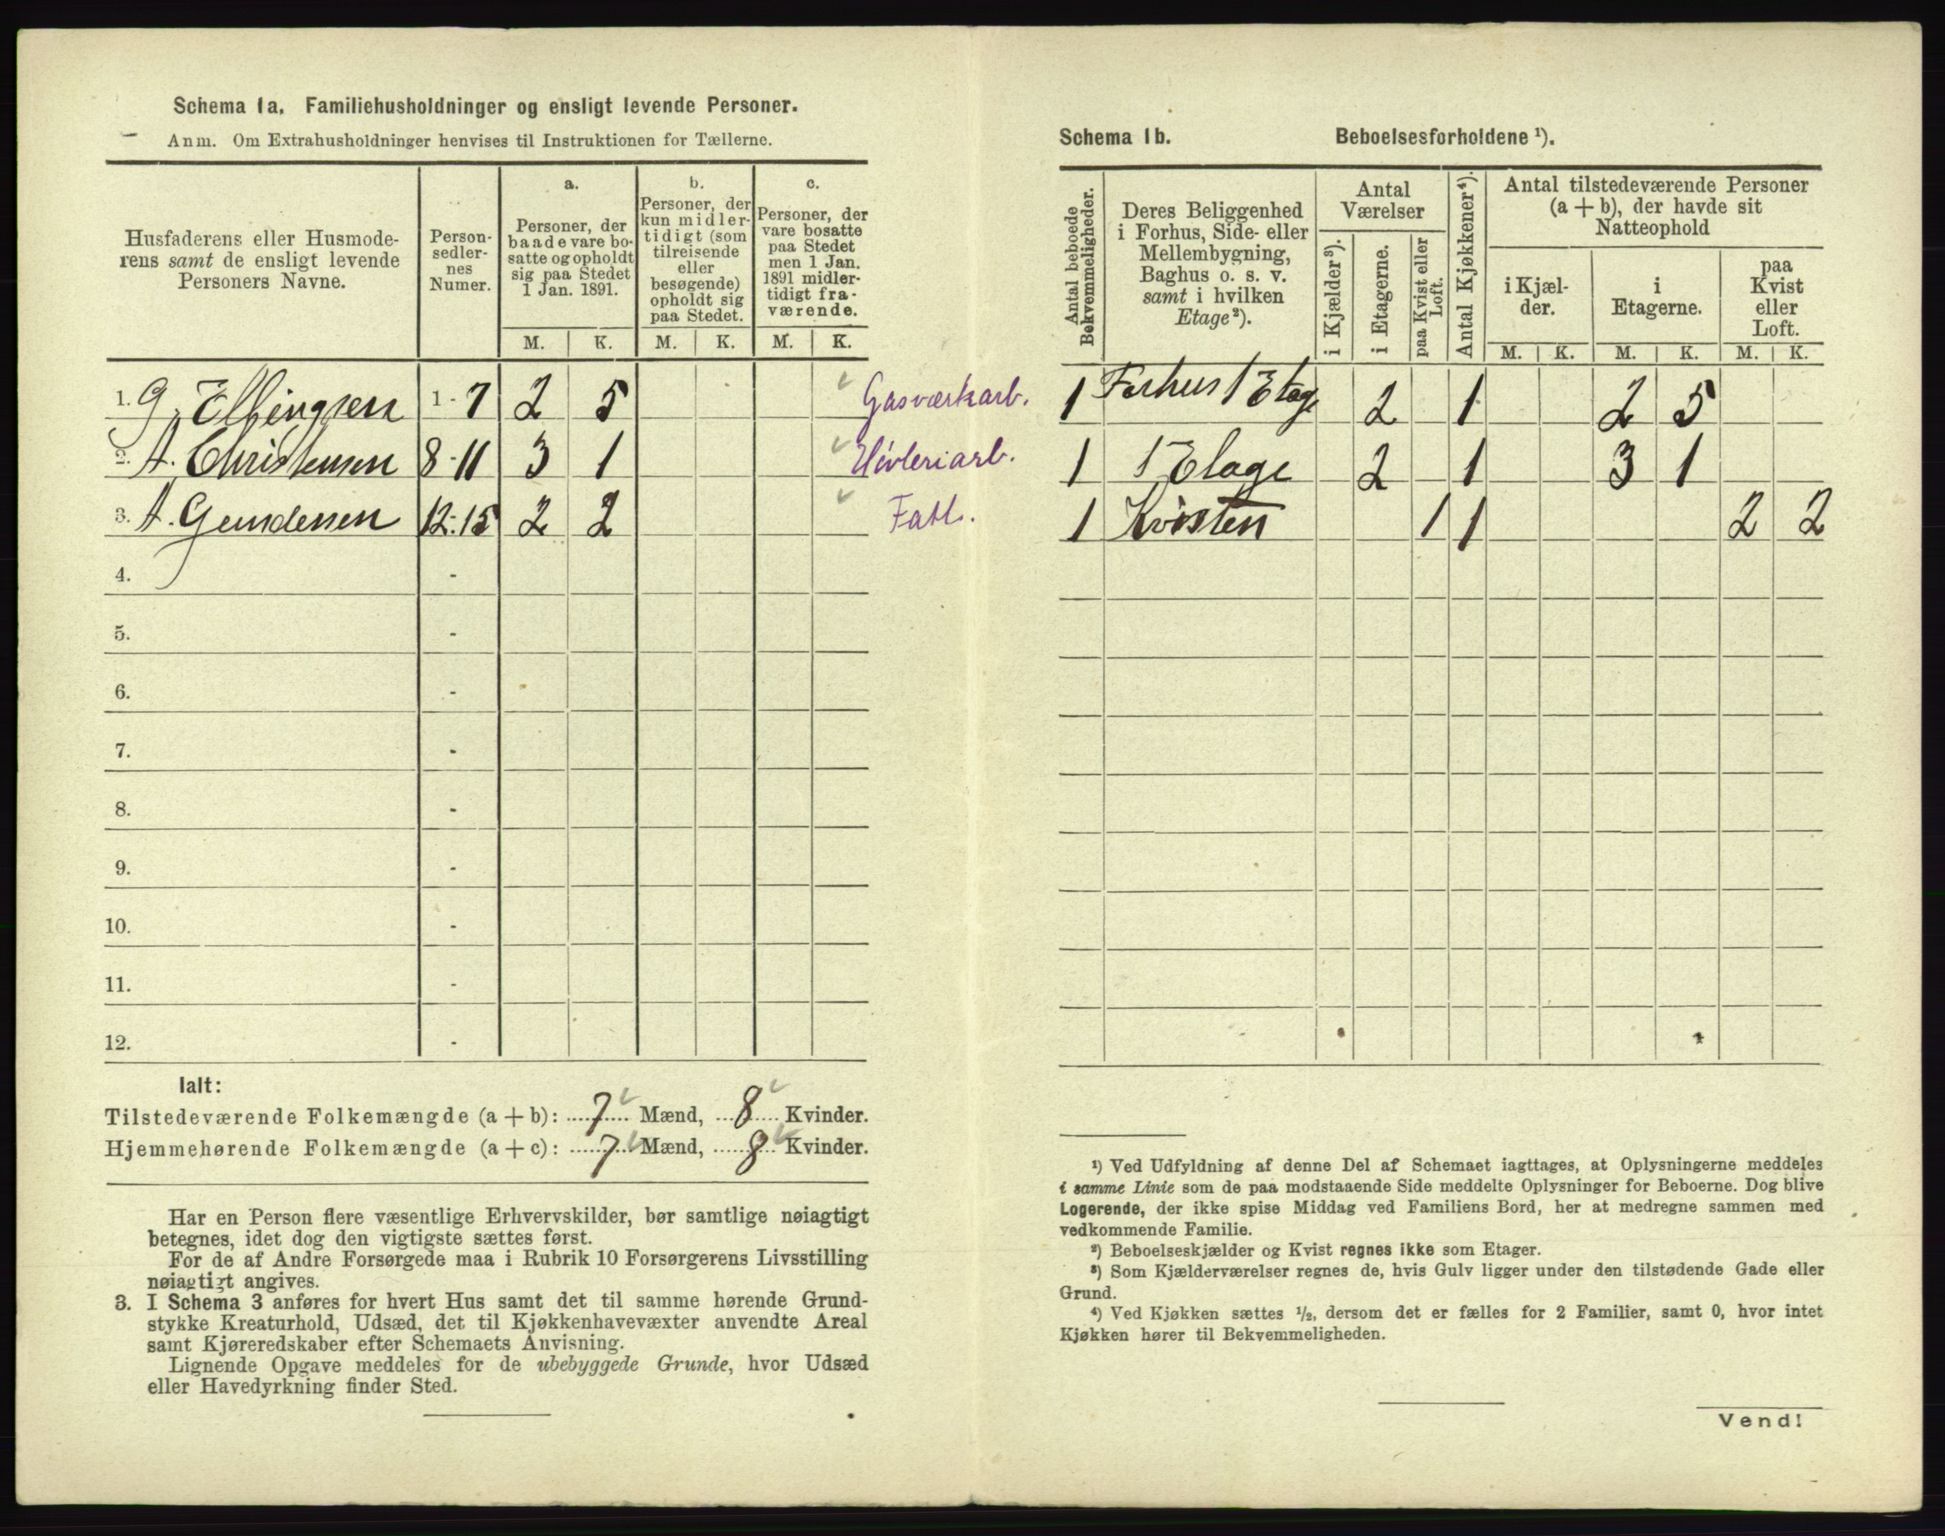 Schema 1a. Familiehusholdninger og ensligt levende Personer.
Anm. Om Extrahusholdninger henvises til Instruktionen for Tællerne.
Husfaderens eller Husmoderens samt de ensligt levende Personers Navne.
Personsedlernes Numer.
a.
Personer, der baade vare bosatte og opholdt sig paa Stedet 1 Jan. 1891.
b.
Personer, der kun midlertidigt (som tilreisende eller besøgende) opholdt sig paa Stedet.
c.
Personer, der vare bosatte paa Stedet men 1 Jan. 1891 midlertidigt fraværende.
M. K. M. K. M. K.
1. G. Ellingsen 1-7 2 5 Gasværkarb.
2. A. Christensen 8-11 3 1 Høvleriarb.
3. A. 12-15 2 2
4. -
5. -
6. -
7. -
8. -
9. -
10. -
11. -
12. -
Ialt:
Tilstedeværende Folkemængde (a + b): 7 Mænd, 8 Kvinder.
Hjemmehørende Folkemængde (a + c): 7 Mænd, 8 Kvinder.
Har en Person flere væsentlige Erhvervskilder, bør samtlige nøiagtigt
betegnes, idet dog den vigtigste sættes først.
For de af Andre Forsørgede maa i Rubrik 10 Forsørgerens Livsstilling
nøiagtigt angives.
3. I Schema 3 anføres for hvert Hus samt det til samme hørende Grund-
stykke Kreaturhold, Udsæd, det til Kjøkkenhavevæxter anvendte Areal
samt Kjøreredskaber efter Schemaets Anvisning.
Lignende Opgave meddeles for de ubebyggede Grunde, hvor Udsæd
eller Havedyrkning finder Sted.
Schema 1b. Beboelsesforholdene ¹).
Antal beboede Bekvemmeligheder.
Deres Beliggenhed i Forhus, Side- eller Mellembygning, Baghus o. s. v. samt i hvilken Etage²).
Antal Værelser
i Kjælder³).
i Etagerne.
paa Kvist eller Loft.
Antal Kjøkkener⁴).
Antal tilstedeværende Personer
(a + b), der havde sit
Natteophold
i Kjælder.
i Etagerne.
paa Kvist eller Loft.
M. K. M. K. M. K.
1 Forhus 1 Etage 2 1 2 5
1 1 Etage 2 1 3 1
1 Kvisten 1 1 2 2
¹) Ved Udfyldning af denne Del af Schemaet iagttages, at Oplysningerne meddeles
i samme Linie som de paa modstaaende Side meddelte Oplysninger for Beboerne. Dog blive
Logerende, der ikke spise Middag ved Familiens Bord, her at medregne sammen med
vedkommende Familie.
²) Beboelseskjælder og Kvist regnes ikke som Etager.
³) Som Kjælderværelser regnes de, hvis Gulv ligger under den tilstødende Gade eller
Grund.
⁴) Ved Kjøkken sættes ¹/₂, dersom det er fælles for 2 Familier, samt 0, hvor intet
Kjøkken hører til Bekvemmeligheden.
Vend!